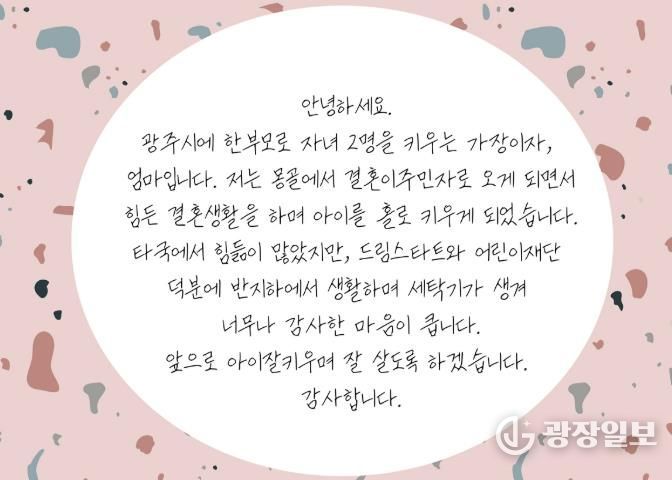 안녕하세요.
광주시에 한부모로 자녀 2명을 키우는 가장이자,
엄마입니다. 저는 몽골에서 결혼이주민자로 오게 되면서
힘든 결혼생활을 하며 아이를 홀로 키우게 되었습니다.
타국에서 힘듦이 많았지만, 드림스타트와 어린이재단
덕분에 반지하에서 생활하며 세탁기가 생겨
너무나 감사한 마음이 큽니다.
앞으로 아이잘키우며 잘 살도록 하겠습니다.
감사합니다.
광장일보